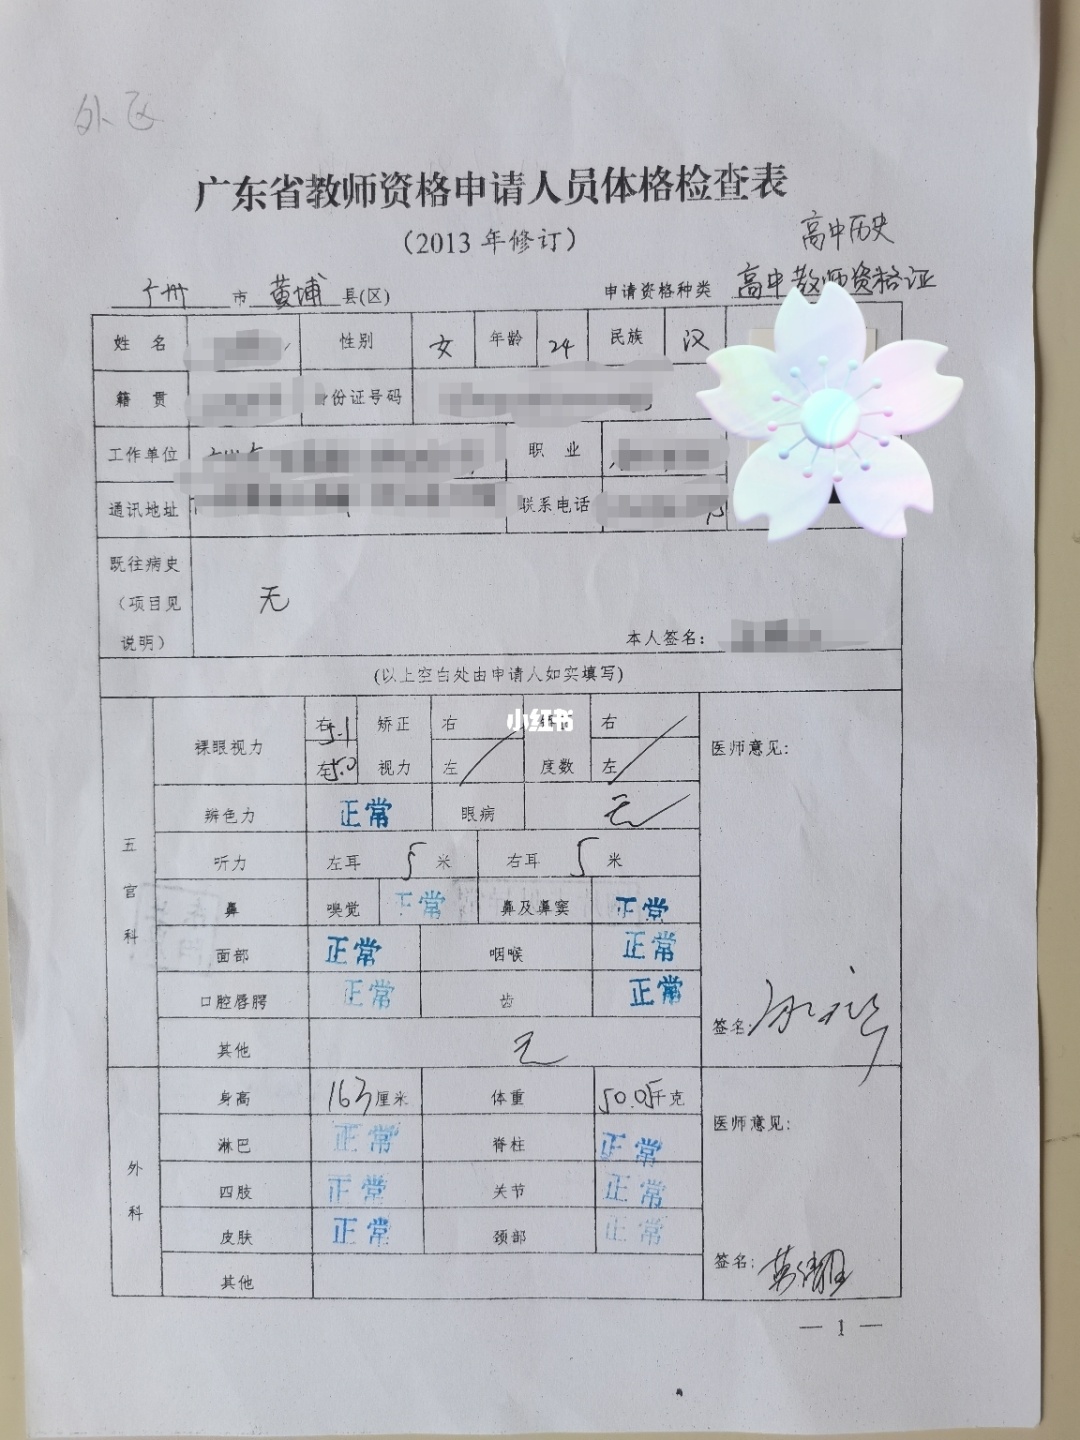 外区
广东省教师资格申请人员体格检查表
（2013 年修订）
高中历史
广州 市 黄埔 县(区) 申请资格种类 高中教师资格证
姓 名 性别 女 年龄 24 民族 汉
籍 贯 身份证号码
工作单位 职 业
通讯地址 联系电话
既往病史
（项目见
说明）
无
本人签名：
(以上空白处由申请人如实填写)
五官科
裸眼视力 右 5.1 矫正 右 右
左 5.0 视力 左 度数 左
小红书
医师意见：
辨色力 正常 眼病 无
听力 左耳 5 米 右耳 5 米
鼻 嗅觉 正常 鼻及鼻窦 正常
面部 正常 咽喉 正常
口腔唇腭 正常 齿 正常
签名：
其他 无
外科
身高 163 厘米 体重 50.05 千克
医师意见：
淋巴 正常 脊柱 正常
四肢 正常 关节 正常
皮肤 正常 颈部 正常
签名：
其他
— 1 —